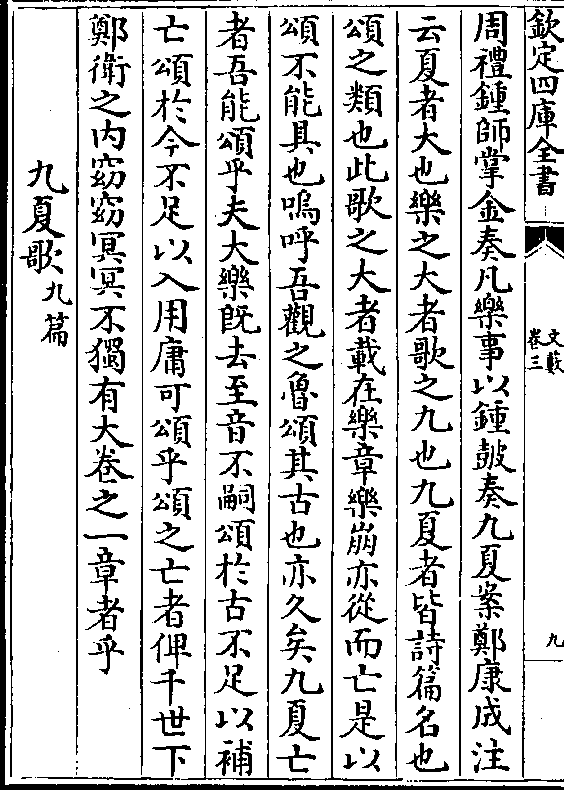 欽定四庫全書
文藪
卷三
九
周禮鍾師掌金奏凡樂事以鍾皷奏九夏案鄭康成注
云夏者大也樂之大者歌之九也九夏者皆詩篇名也
頌之類也此歌之大者載在樂章樂崩亦從而亡是以
頌不能具也嗚呼吾觀之魯頌其古也亦久矣九夏亡
者吾能頌乎夫大樂既去至音不嗣頌於古不足以補
亡頌於今不足以入用庸可頌乎頌之亡者俾千世下
鄭衛之内窈窈冥冥不獨有大卷之一章者乎
九夏歌九篇